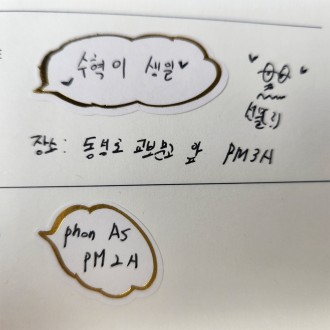 수혁이 생일
선물!!
장소: 동성로 교보문고 앞 PM3시
phon AS
PM 2시